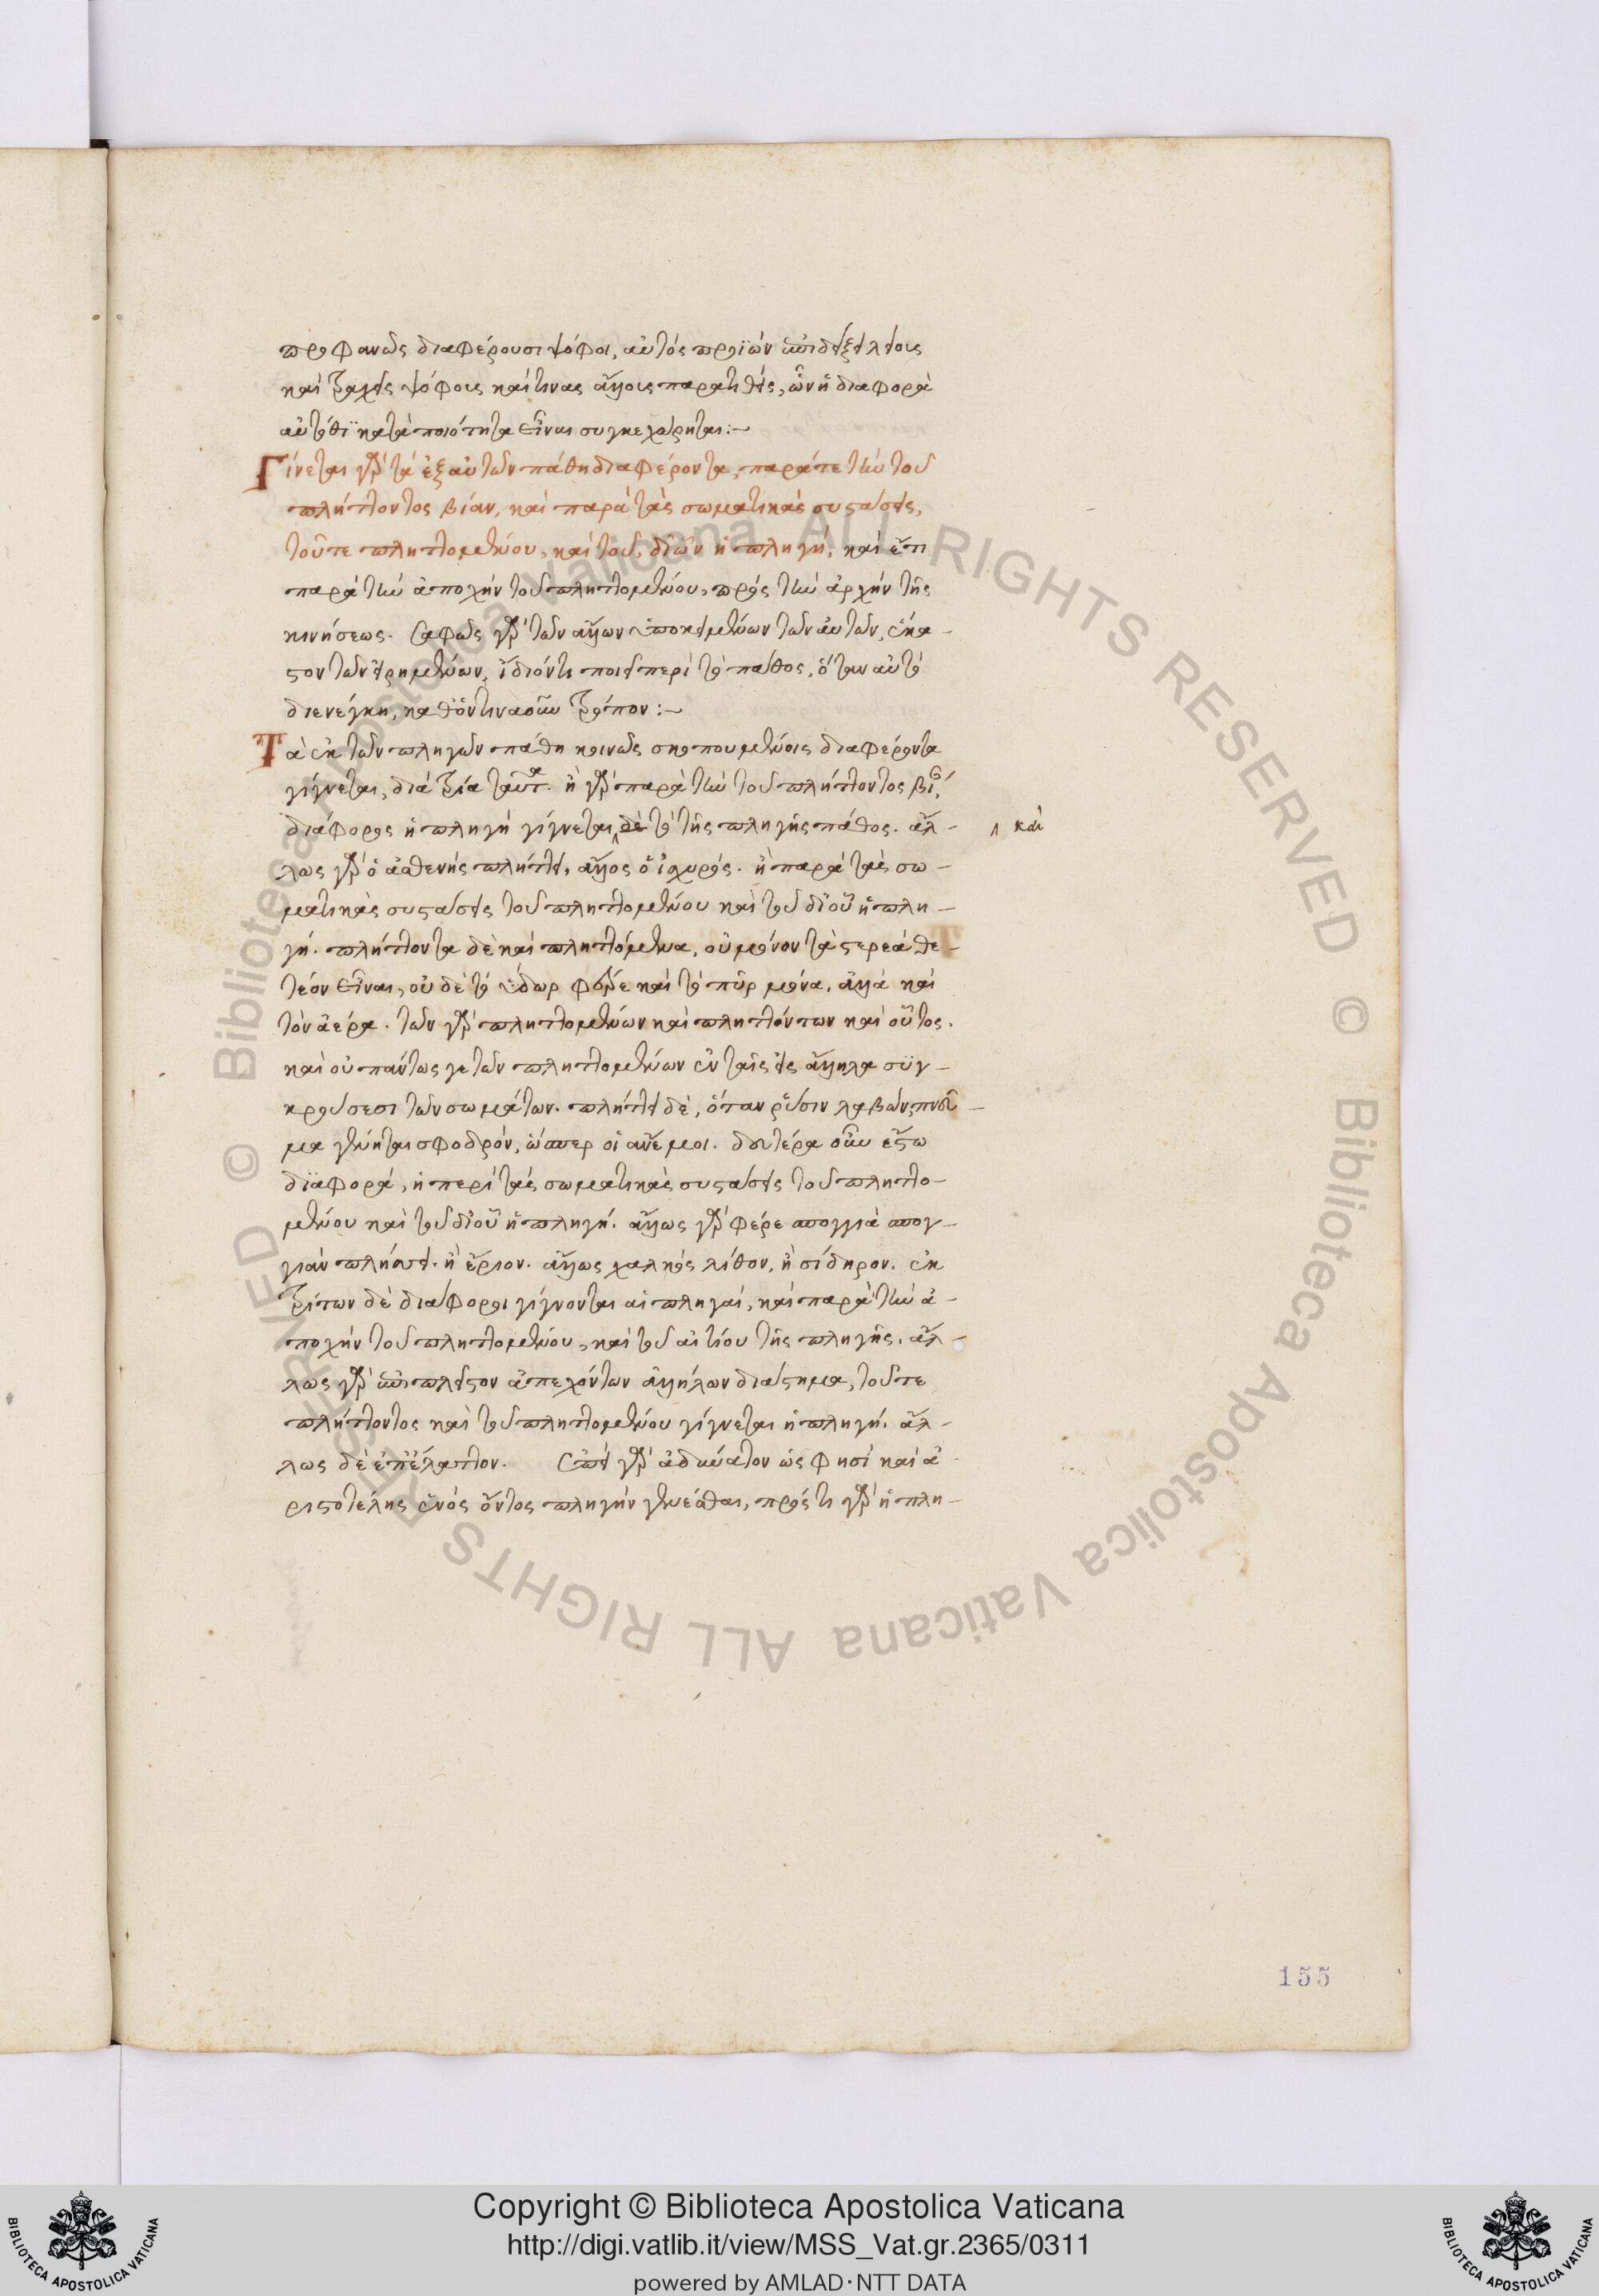 προφανῶς διαφέρουσι ψόφοι, αὐτὸς προϊὼν ἐπιδείξει λείοις
καὶ τραχεῖς ψόφοις καί τινας ἄλλοις παρατιθείς, ὧν ἡ διαφορὰ
αὐτόθι κατὰ ποιότητα εἶναι συγκεχώρηται:~
Γίνεται γὰρ τὰ ἐξ αὐτῶν πάθη διαφέροντα, παρά τε τὴν τοῦ
πλήττοντος βίαν, καὶ παρὰ τὰς σωματικὰς συστάσεις,
τοῦ τε πληττομένου, καὶ τοῦ, δι' ὧν ἡ πληγή, καὶ ἔτι
παρὰ τὴν ἀποχὴν τοῦ πληττομένου, πρὸς τὴν ἀρχὴν τῆς
κινήσεως. Σαφῶς γὰρ τῶν ἄλλων ὑποκειμένων τῶν αὐτῶν, ἕκα-
στον τῶν εἰρημένων, ἴδιόν τι ποιεῖ περὶ τὸ πάθος, ὅταν αὐτὸ
διενέγκῃ, καθ' ὅντινα οὖν τρόπον:~
Τὰ ἐκ τῶν πληγῶν πάθη κοινῶς σκοπουμένοις διαφέροντα
γίγνεται, διὰ τρία ταῦτα. ἢ γὰρ παρὰ τὴν τοῦ πλήττοντος βίαν,
διάφορος ἡ πληγὴ γίγνεται δὲ τὸ τῆς πληγῆς πάθος. ἄλ-
καὶ
λως γὰρ ὁ ἀσθενὴς πλήττει, ἄλλος ὁ ἰσχυρός. ἢ παρὰ τὰς σω-
ματικὰς συστάσεις τοῦ πληττομένου καὶ τοῦ δι' οὗ ἡ πλη-
γή. πλήττοντα δὲ καὶ πληττόμενα, οὐ μόνον τὰ στερεὰ θε-
τέον εἶναι, οὐδὲ τὸ ὕδωρ φέρε καὶ τὸ πῦρ μόνα, ἀλλὰ καὶ
τὸν ἀέρα. τῶν γὰρ πληττομένων καὶ πληττόντων καὶ οὗτος.
καὶ οὐ πάντως γε τῶν πληττομένων ἐν ταῖς εἰς ἄλληλα συγ-
κρούσεσι τῶν σωμάτων. πλήττει δὲ, ὅταν ῥύσιν λαβὼν, πνεῦ-
μα γένηται σφοδρόν, ὥσπερ οἱ ἄνεμοι. δευτέρα οὖν ἔστω
διαφορά, ἡ περὶ τὰς σωματικὰς συστάσεις τοῦ πληττο-
μένου καὶ τοῦ δι' οὗ ἡ πληγή. ἄλλως γὰρ φέρε σπογγιὰ σπογ-
γιὰν πλήσσει. ἢ ἔριον. ἄλλως χαλκὸς λίθον, ἢ σίδηρον. ἐκ
τρίτων δὲ διάφοροι γίγνονται αἱ πληγαί, καὶ παρὰ τὴν ἀ-
ποχὴν τοῦ πληττομένου, καὶ τοῦ αἰτίου τῆς πληγῆς. ἄλ-
λως γὰρ ἐπὶ πλεῖστον ἀπεχόντων ἀλλήλων διάστημα, τοῦ τε
πλήττοντος καὶ τοῦ πληττομένου γίγνεται ἡ πληγή. ἄλ-
λως δὲ ἐπ' ἔλαττον. Ἐπεὶ γὰρ ἀδύνατον ὥς φησι καὶ ἀ-
ριστοτέλης ἑνὸς ὄντος πληγὴν γενέσθαι, πρός τι γὰρ ἡ πλη-
155
© Biblioteca Apostolica Vaticana ALL RIGHTS RESERVED © Biblioteca Apostolica Vaticana ALL RIGHTS RESERVED
Copyright © Biblioteca Apostolica Vaticana
http://digi.vatlib.it/view/MSS_Vat.gr.2365/0311
powered by AMLAD·NTT DATA
BIBLIOTECA APOSTOLICA VATICANA
BIBLIOTECA APOSTOLICA VATICANA